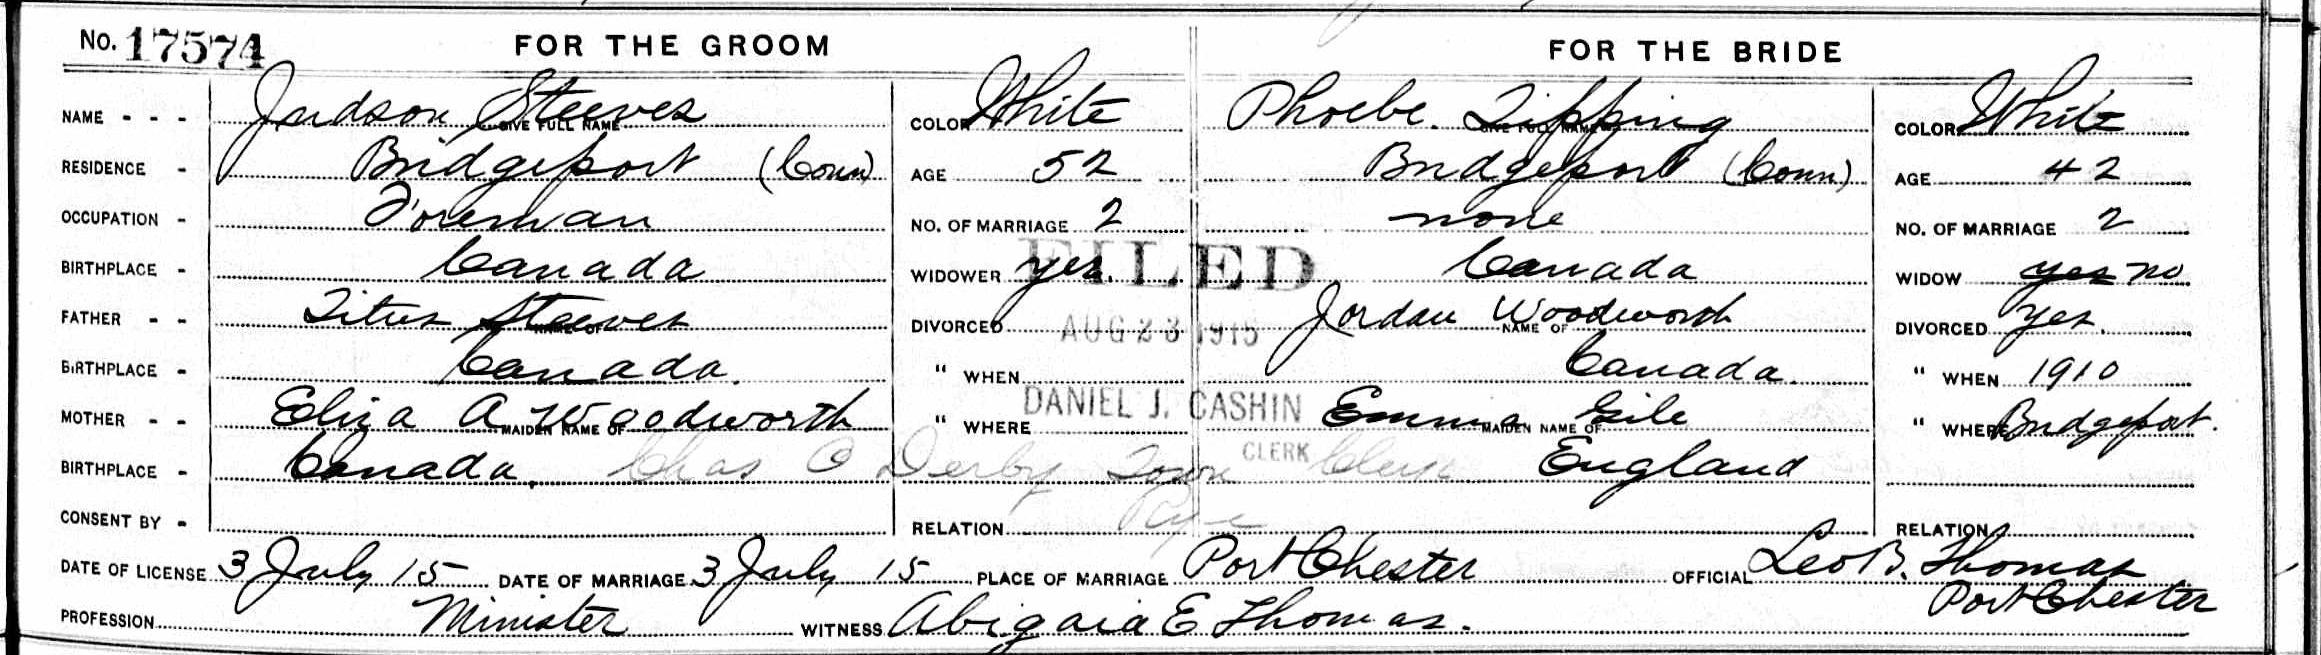 No. 17574 FOR THE GROOM FOR THE BRIDE
NAME - - - Judson Steeves GIVE FULL NAME COLOR White Phoebe Tipping GIVE FULL NAME COLOR White
RESIDENCE - Bridgeport (Conn) AGE 52 Bridgeport (Conn) AGE 42
OCCUPATION - Foreman NO. OF MARRIAGE 2 none NO. OF MARRIAGE 2
BIRTHPLACE - Canada WIDOWER yes. Canada WIDOW yes no
FILED
FATHER - - Titus Steeves NAME OF DIVORCED Jordan Woodworth NAME OF DIVORCED yes.
AUG 23 1915
BIRTHPLACE - Canada. " WHEN Canada. " WHEN 1910
DANIEL J. CASHIN
MOTHER - - Eliza A Woodworth MAIDEN NAME OF " WHERE Emma Gile MAIDEN NAME OF " WHERE Bridgeport.
CLERK
BIRTHPLACE - Canada. Chas O Derby Town Clerk England
Rye
CONSENT BY - RELATION RELATION
DATE OF LICENSE 3 July 15 DATE OF MARRIAGE 3 July 15 PLACE OF MARRIAGE Port Chester OFFICIAL Leo B. Thomas
Port Chester
PROFESSION Minister WITNESS E Thomas.